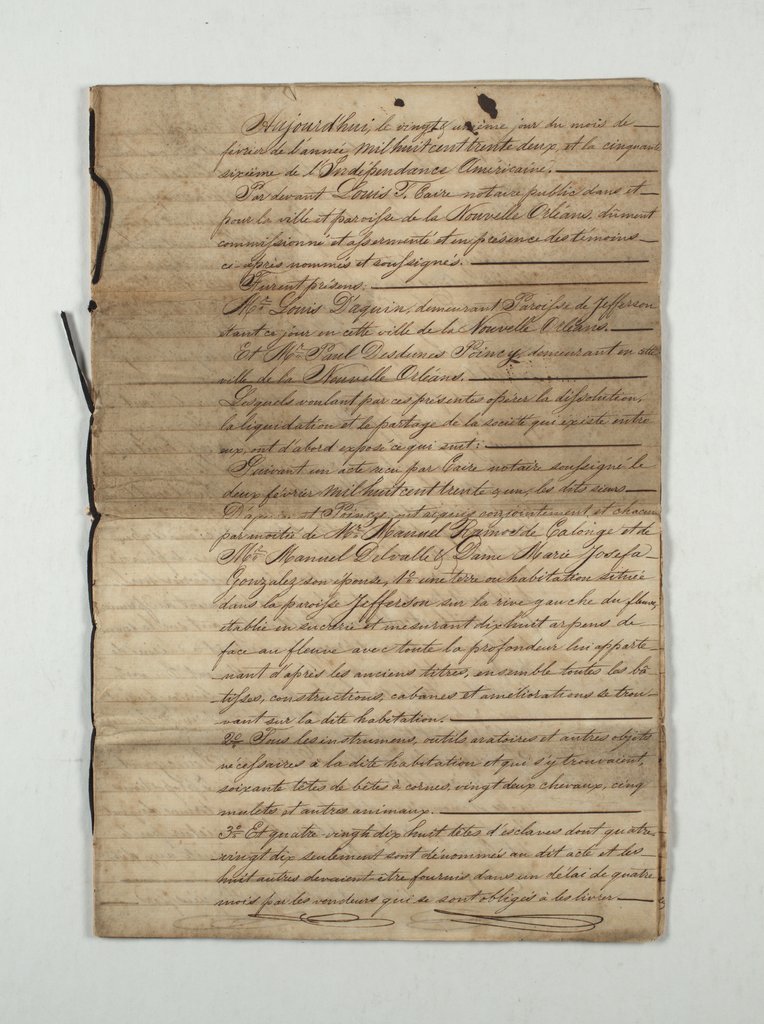 Aujourd'hui, le vingt & unième jour du mois de
fevrier de l'année mil huit cent trente deux, et la cinquante
sixième de l'Indépendance Américaine.
Par devant Louis T. Caire notaire public dans et
pour la ville et paroisse de la Nouvelle Orléans, dûment
commissionné et assermenté et en présence des témoins
ci-après nommés et soussignés.
Furent présens:
Mr. Louis D'aquin, demeurant Paroisse de Jefferson
étant ce jour en cette ville de la Nouvelle Orléans.
Et Mr. Paul Desdunes Poincy, demeurant en cette
ville de la Nouvelle Orléans.
Lesquels voulant par ces présentes opérer la dissolution,
la liquidation et le partage de la société qui existe entre
eux, ont d'abord exposé ce qui suit:
Suivant un acte reçu par Caire notaire soussigné le
deux février mil huit cent trente & un, les dits sieurs
D'aquin et Poincy ont acquis conjointement et chacun
par moitié de Mr. Manuel Ramos de Calonge et de
Mr. Manuel Delvalle & Dame Marie Josefa
Gonzalez son épouse, 1o. une terre ou habitation située
dans la paroisse Jefferson sur la rive gauche du fleuve,
établie en sucrerie et mesurant dix huit arpens de
face au fleuve avec toute la profondeur lui apparte-
nant d'après les anciens titres, ensemble toutes les bâ-
tisses, constructions, cabanes et améliorations se trou-
vant sur la dite habitation.
2o. Tous les instrumens, outils aratoires et autres objets
nécessaires à la dite habitation et qui s'y trouvaient,
soixante têtes de bêtes à cornes, vingt deux chevaux, cinq
mulets et autres animaux.
3o. Et quatre-vingt dix huit têtes d'esclaves dont quatre-
vingt dix seulement sont dénommés au dit acte et les
huit autres devaient être fournis dans un délai de quatre
mois par les vendeurs qui se sont obligés à les livrer